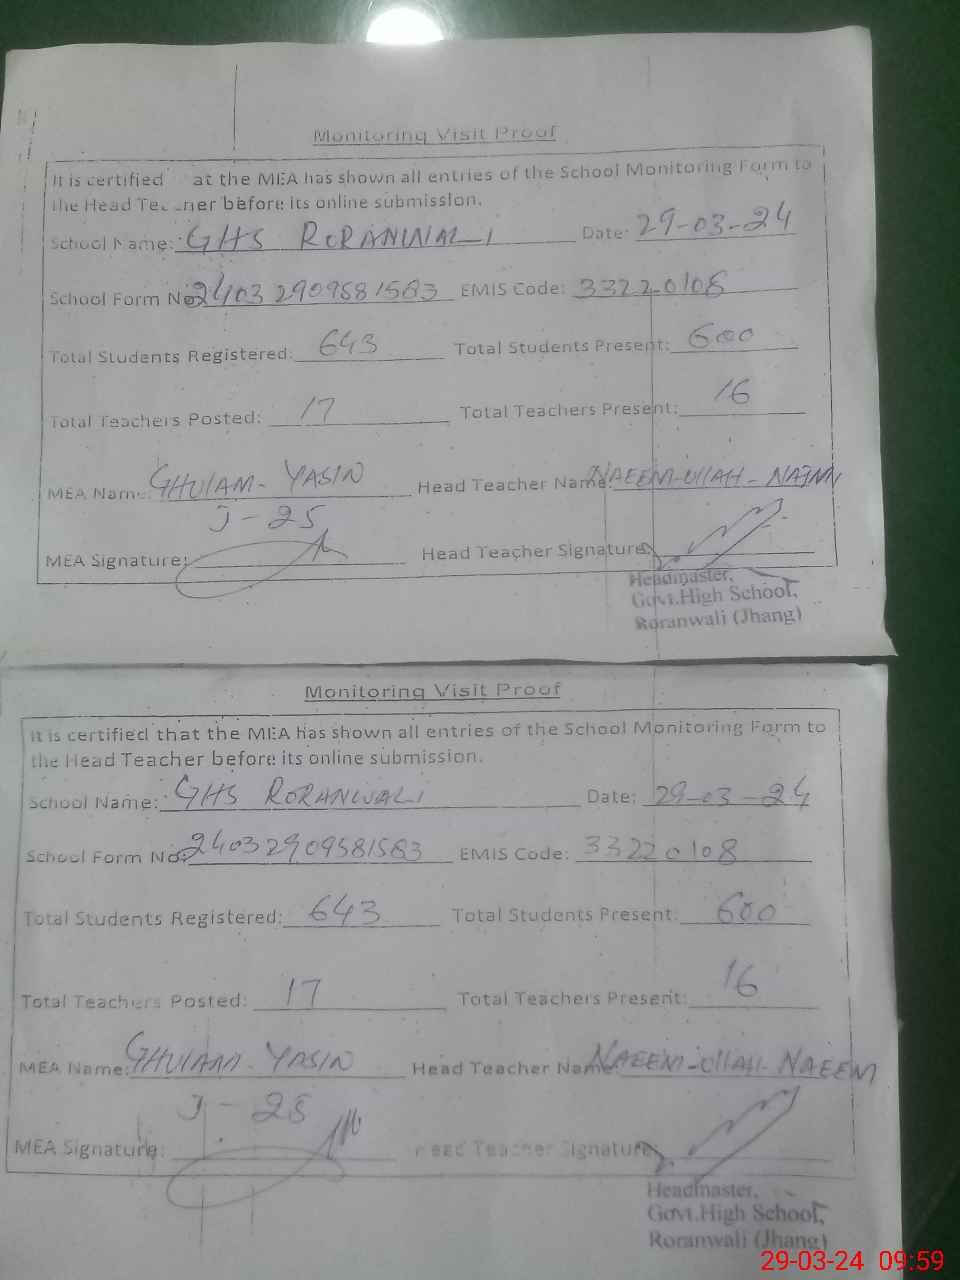 Monitoring Visit Proof
It is certified at the MEA has shown all entries of the School Monitoring Form to
the Head Teacher before its online submission.
School Name: GHS RORANWALI Date: 29-03-24
School Form No. 2403 2909581583 EMIS Code: 33220108
Total Students Registered: 643 Total Students Present: 600
Total Teachers Posted: 17 Total Teachers Present: 16
MEA Name: GHULAM- YASIN Head Teacher Name: NAEEM-ULLAH -
J-25
MEA Signature: Head Teacher Signature:
Headmaster,
Govt.High School,
Roranwali (Jhang)
Monitoring Visit Proof
It is certified that the MEA has shown all entries of the School Monitoring Form to
the Head Teacher before its online submission.
School Name: GHS RORANWALI Date: 29-03-24
School Form No: 24032909581583 EMIS Code: 33220108
Total Students Registered: 643 Total Students Present: 600
Total Teachers Posted: 17 Total Teachers Present: 16
MEA Name: GHULAM- YASIN Head Teacher Name: NAEEM-ULLAH- NAEEM
J-25
MEA Signature: Head Teacher Signature:
Headmaster,
Govt.High School,
Roranwali (Jhang)
29-03-24 09:59